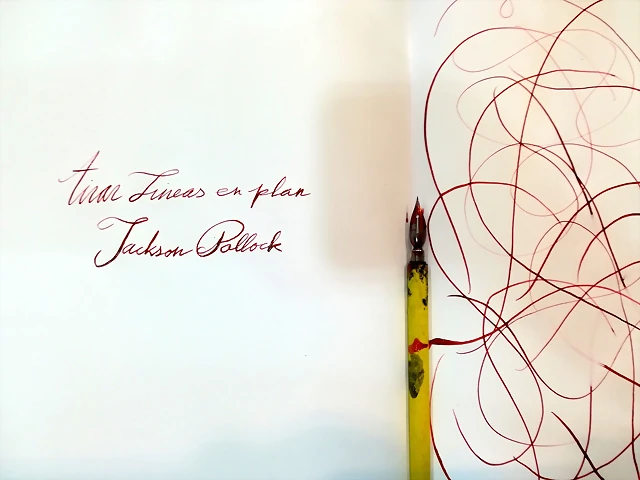 tirar Lineas en plan
Jackson Pollock